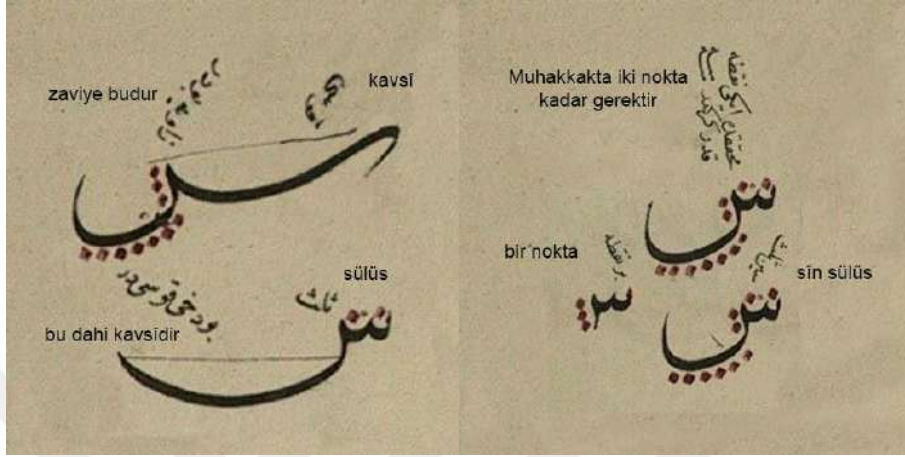 zaviye budur
زاویه بودر
kavsî
قوسی
س
بودخی قوسی در
bu dahi kavsîdir
sülüs
ثلث
س
Muhakkakta iki nokta
kadar gerektir
محققده ایکی نقطه
قدر کرکدر
س
bir nokta
بر نقطه
sîn sülüs
سین ثلث
س